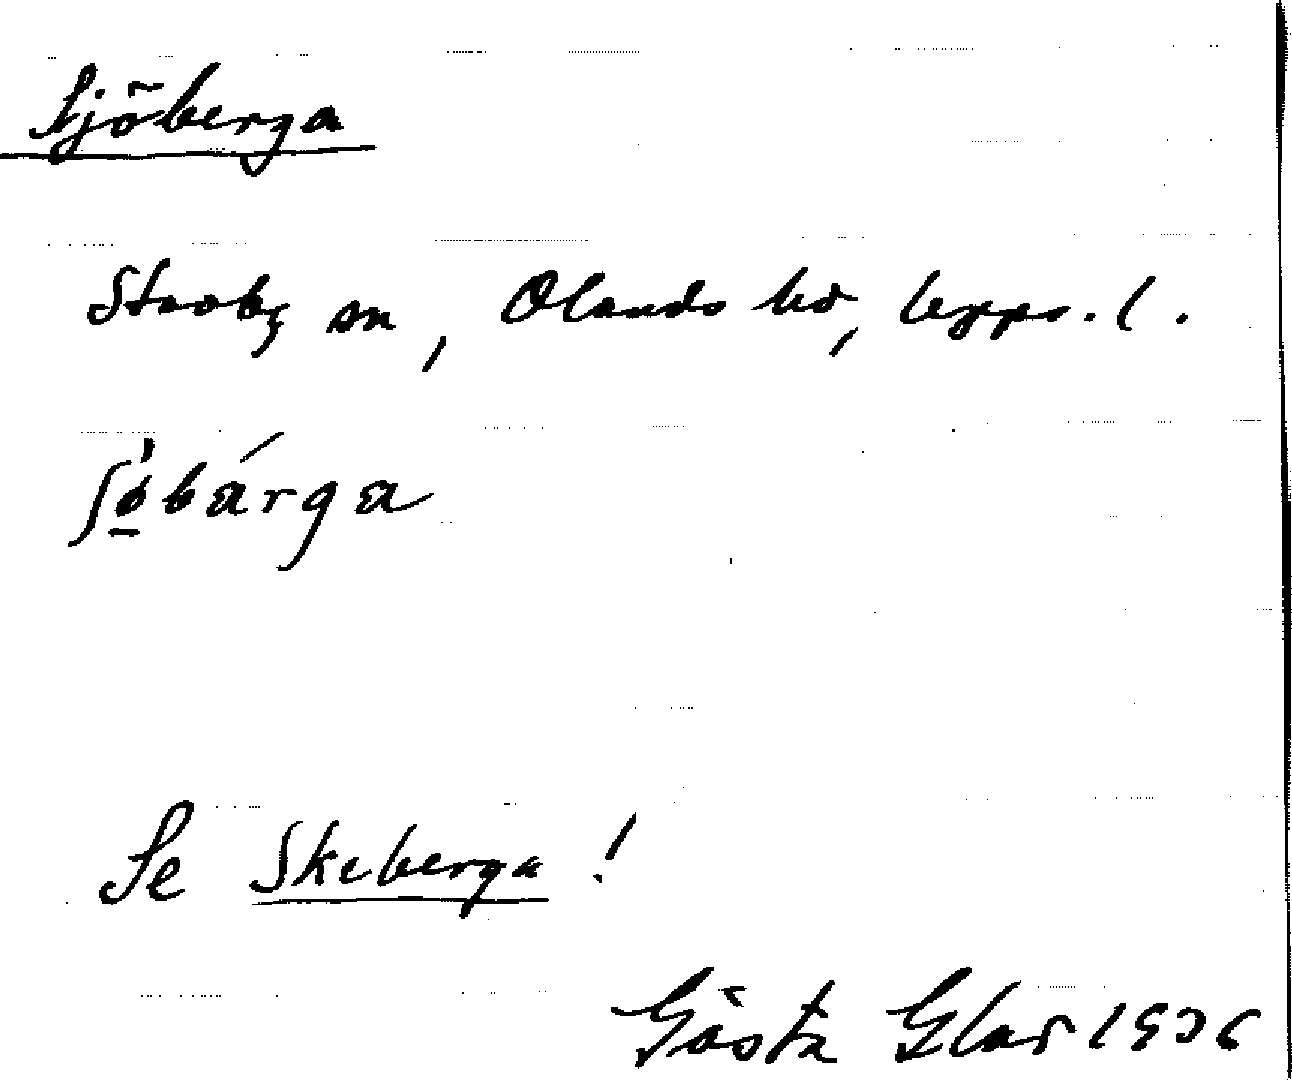 Sjöberga
Stavby sn, Olands hd, Upps. l.
Se Skeberga!
Gösta Elar 1936